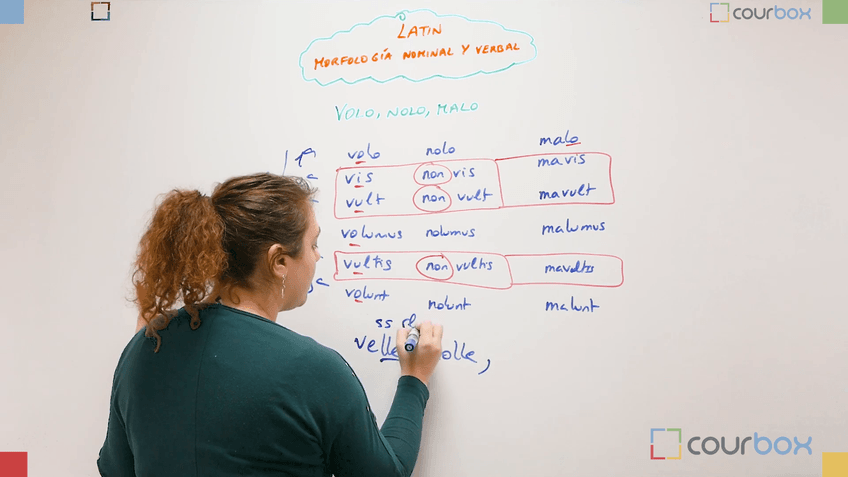 courbox
LATIN
MORFOLOGÍA NOMINAL Y VERBAL
VOLO, NOLO, MALO
1ª volo nolo malo
vis non vis mavis
vult non vult mavult
volumus nolumus malumus
vultis non vultis mavultis
volunt nolunt malunt
ss
velle olle,
courbox